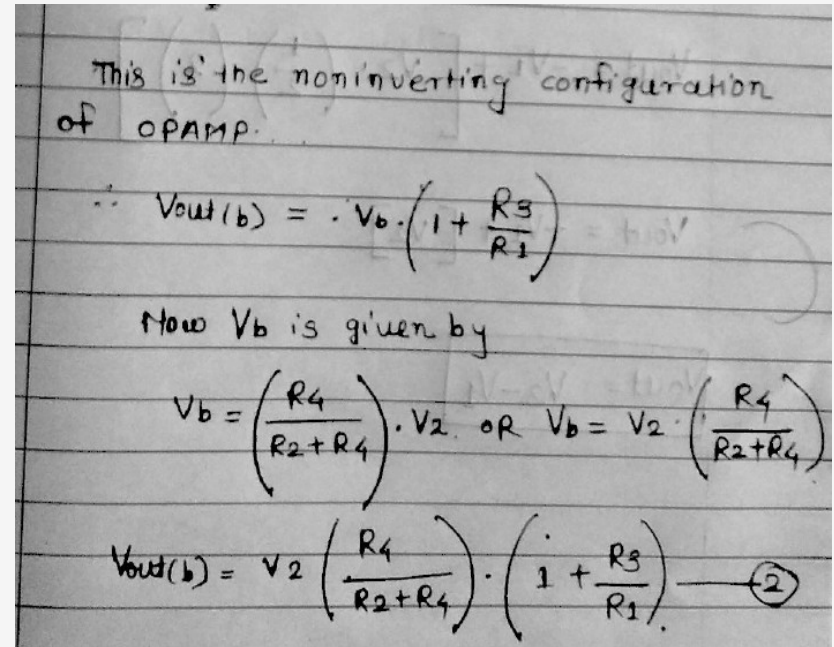 This is the noninverting configuration
of OPAMP.
∴ Vout(b) = Vb.(1 + R3/R1)
Now Vb is given by
Vb = (R4/(R2+R4)).V2 OR Vb = V2.(R4/(R2+R4))
Vout(b) = V2 (R4/(R2+R4)).(1 + R3/R1) — 2